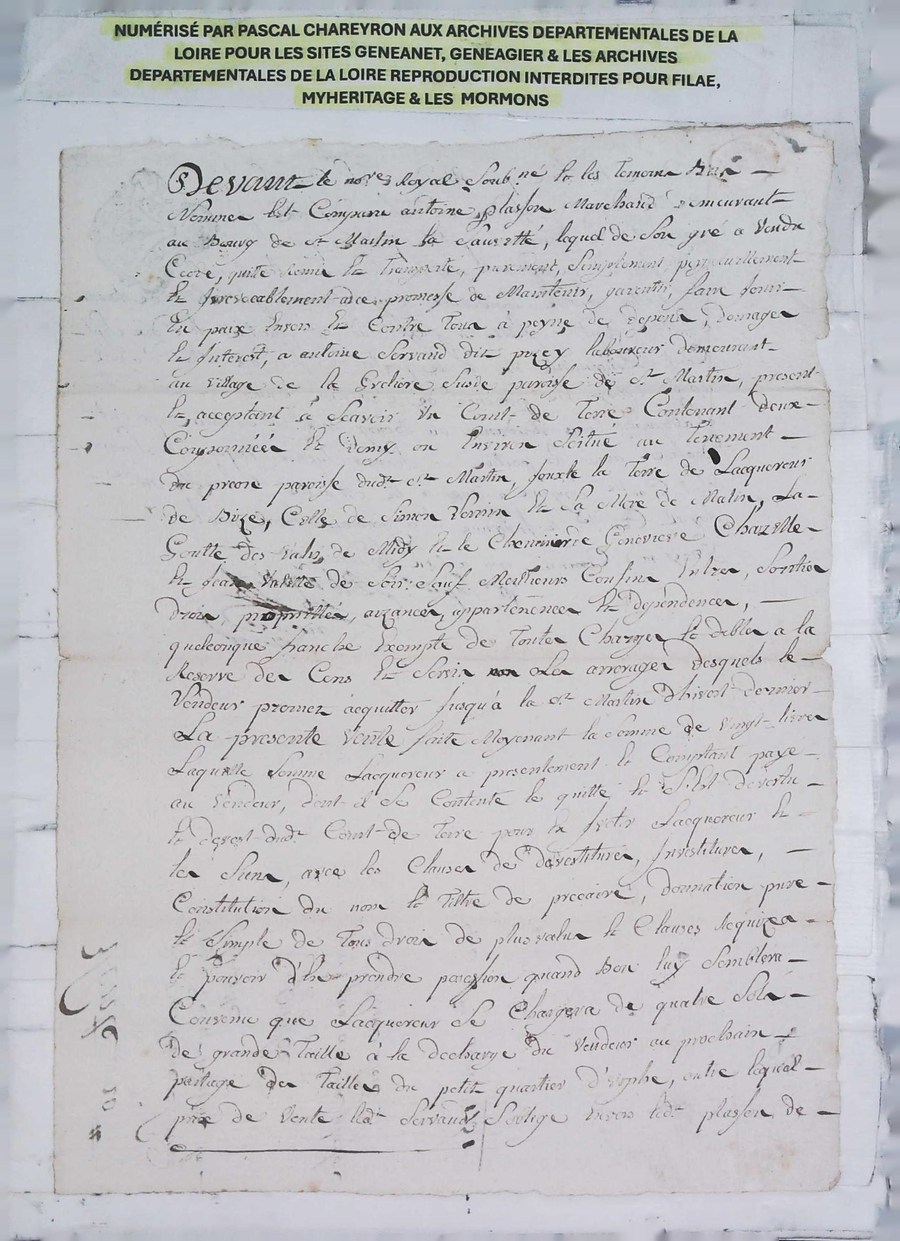 NUMÉRISÉ PAR PASCAL CHAREYRON AUX ARCHIVES DEPARTEMENTALES DE LA
LOIRE POUR LES SITES GENEANET, GENEAGIER & LES ARCHIVES
DEPARTEMENTALES DE LA LOIRE REPRODUCTION INTERDITES POUR FILAE,
MYHERITAGE & LES MORMONS
Devant le no.re Royal Soub.né Et les temoins Bas
Nommes Est Comparu antoine plasson Marchand Demeurant
au Bourg de St Martin la Sauvetté, lequel de Son gré a Vendu
Cedé, quité Remis Et Transporté, purement, Simplement perpetuellement
Et Irrevocablement avec promesse de Maintenir, garentir, faire Jouir
En paix Envers Et Contre Tous à peyne de Depens, Domages
Et Interest, a antoine Servand dit laboureur Demeurant
au village de la Susd.e paroisse de St Martin, present
Et acceptant à Scavoir Un Coint de Terre Contenant deux
Couponnéés Et Demy ou Environ Scitué au Tenement
du paroisse dud.t St Martin, Jouxte la Terre de Lacquereur
de Bize, Celle de Simon Et Sa Mere de Matin, La
Goutte des de Midy Et le de Genevieve Chazelle
Et Jean de Soir, Sauf Meilleurs Confins Entrées, Sorties
Droits, proprietés, aizances, appartenences Et dependences,
quelconque franche Exempte de Toutes Charges Et debtes a la
Reserve des Cens Et Servis Les arrerages desquels le
Vendeur promet acquitter Jusqu'à la St Martin D'hivert dernier
La presente Vente faite Moyenant la Somme de Vingt livres
Laquelle Somme Lacquereur a presentement Et Comptant payé
au Vendeur, dont il Se Contente Et quitte Et S'est devestu
Et devest dud.t Coint de Terre pour En Lacquereur Et
les Siens, avec les Clauses de devestiture, Investiture,
Constitution du nom Et Tiltre de precaire, Donnation pure
Et Simple de Tous droits de plus value Et Clauses Requizes
Et pouvoir d'En prendre possession quand Bon luy Semblera
Convenu que Lacquereur Se Chargera de quatre Sols
de grande Taille à la decharge du Vendeur au prochain
partage des Tailles du petit quartier d'urphe, outre lequel
prix de Vente led.t Servand Soblige Envers led.t plasson de